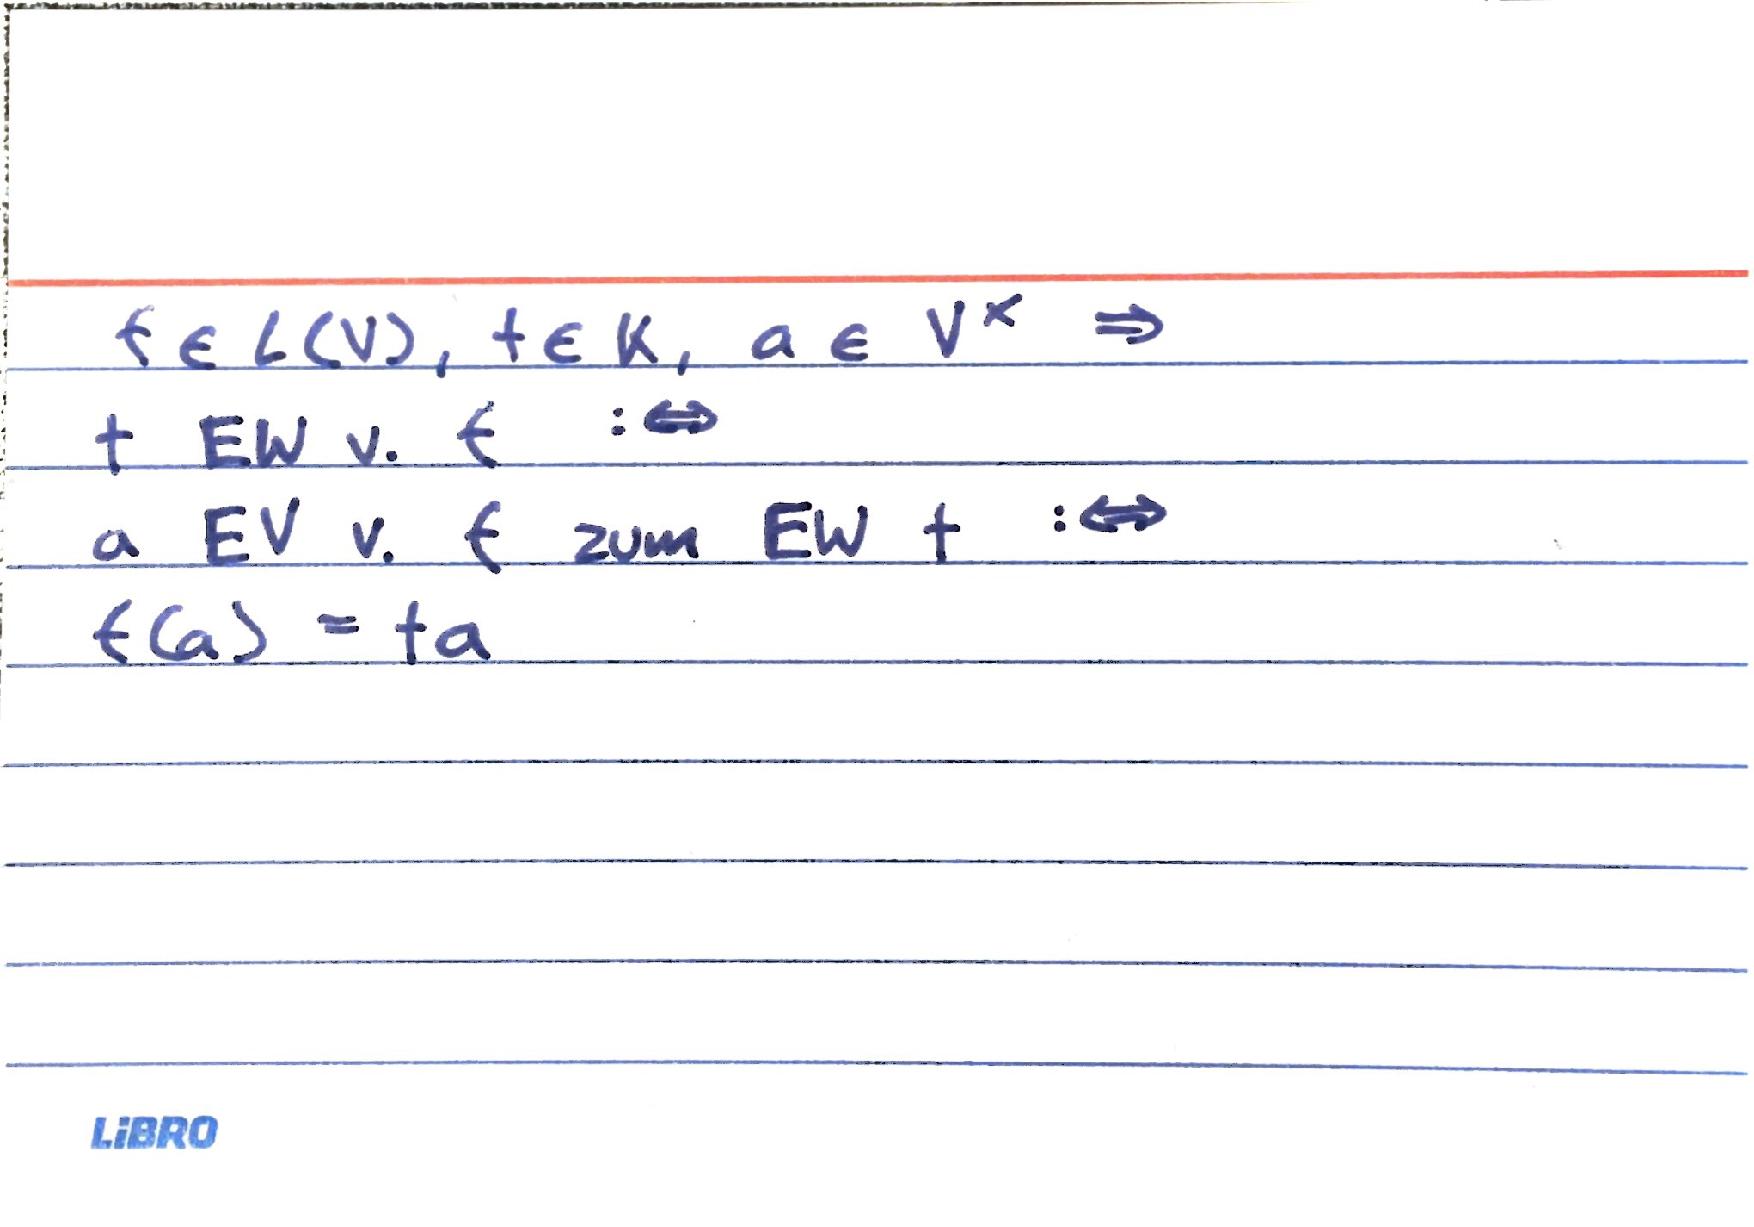 f ∈ L(V), t ∈ K, a ∈ V^× ⇒
t EW v. f :⇔
a EV v. f zum EW t :⇔
f(a) = ta
LiBRO